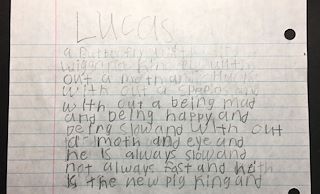 Lucas
a Butterfly with
with
out a moth and
with out a and
with out a being mad
and being happy and
being slow and with out
a moth and eye and
he is always slow and
not always fast and
is the new pig king and